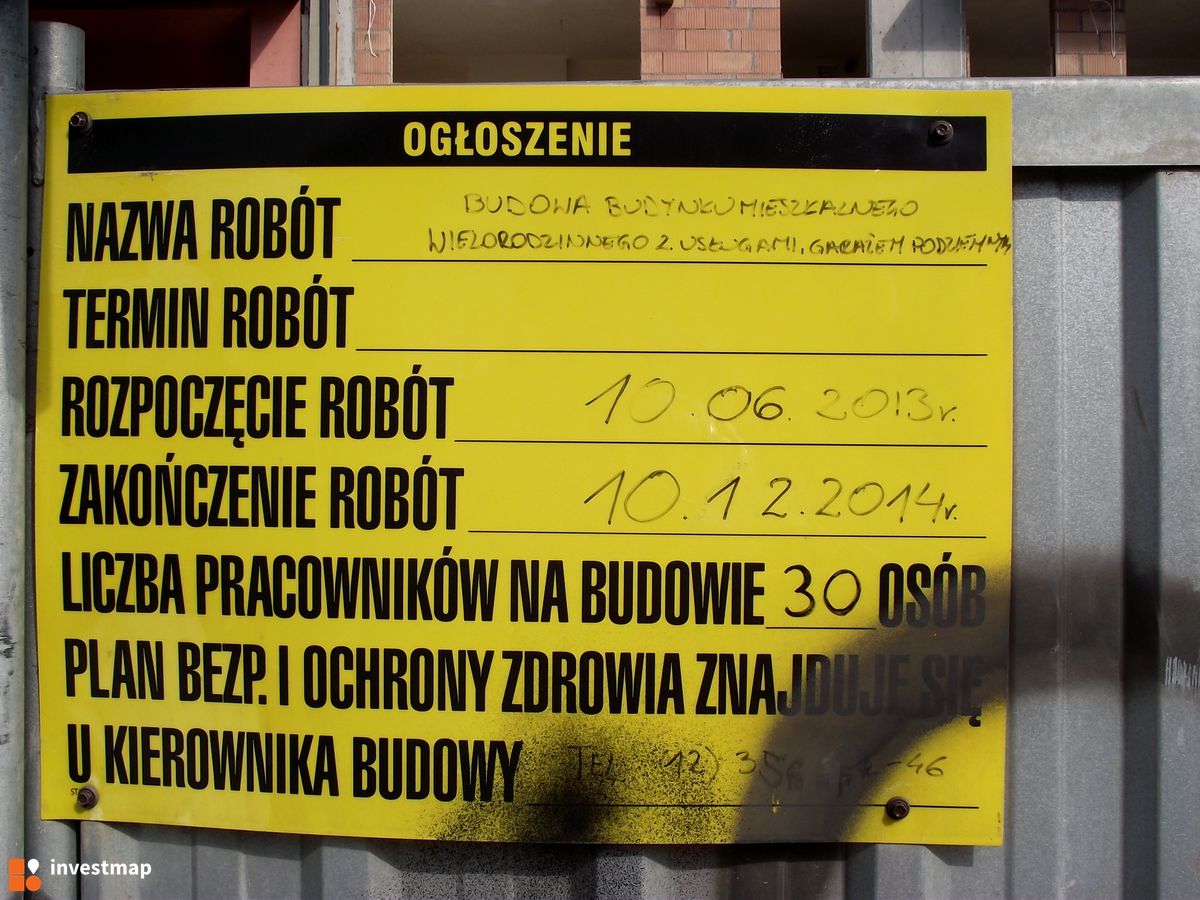 OGŁOSZENIE
NAZWA ROBÓT BUDOWA BUDYNKU MIESZKALNEGO
WIELORODZINNEGO Z USŁUGAMI, GARAŻEM PODZIEMNYM
TERMIN ROBÓT
ROZPOCZĘCIE ROBÓT 10.06.2013r.
ZAKOŃCZENIE ROBÓT 10.12.2014r.
LICZBA PRACOWNIKÓW NA BUDOWIE 30 OSÓB
PLAN BEZP. I OCHRONY ZDROWIA ZNAJDUJE SIĘ
U KIEROWNIKA BUDOWY TEL. (12)
investmap